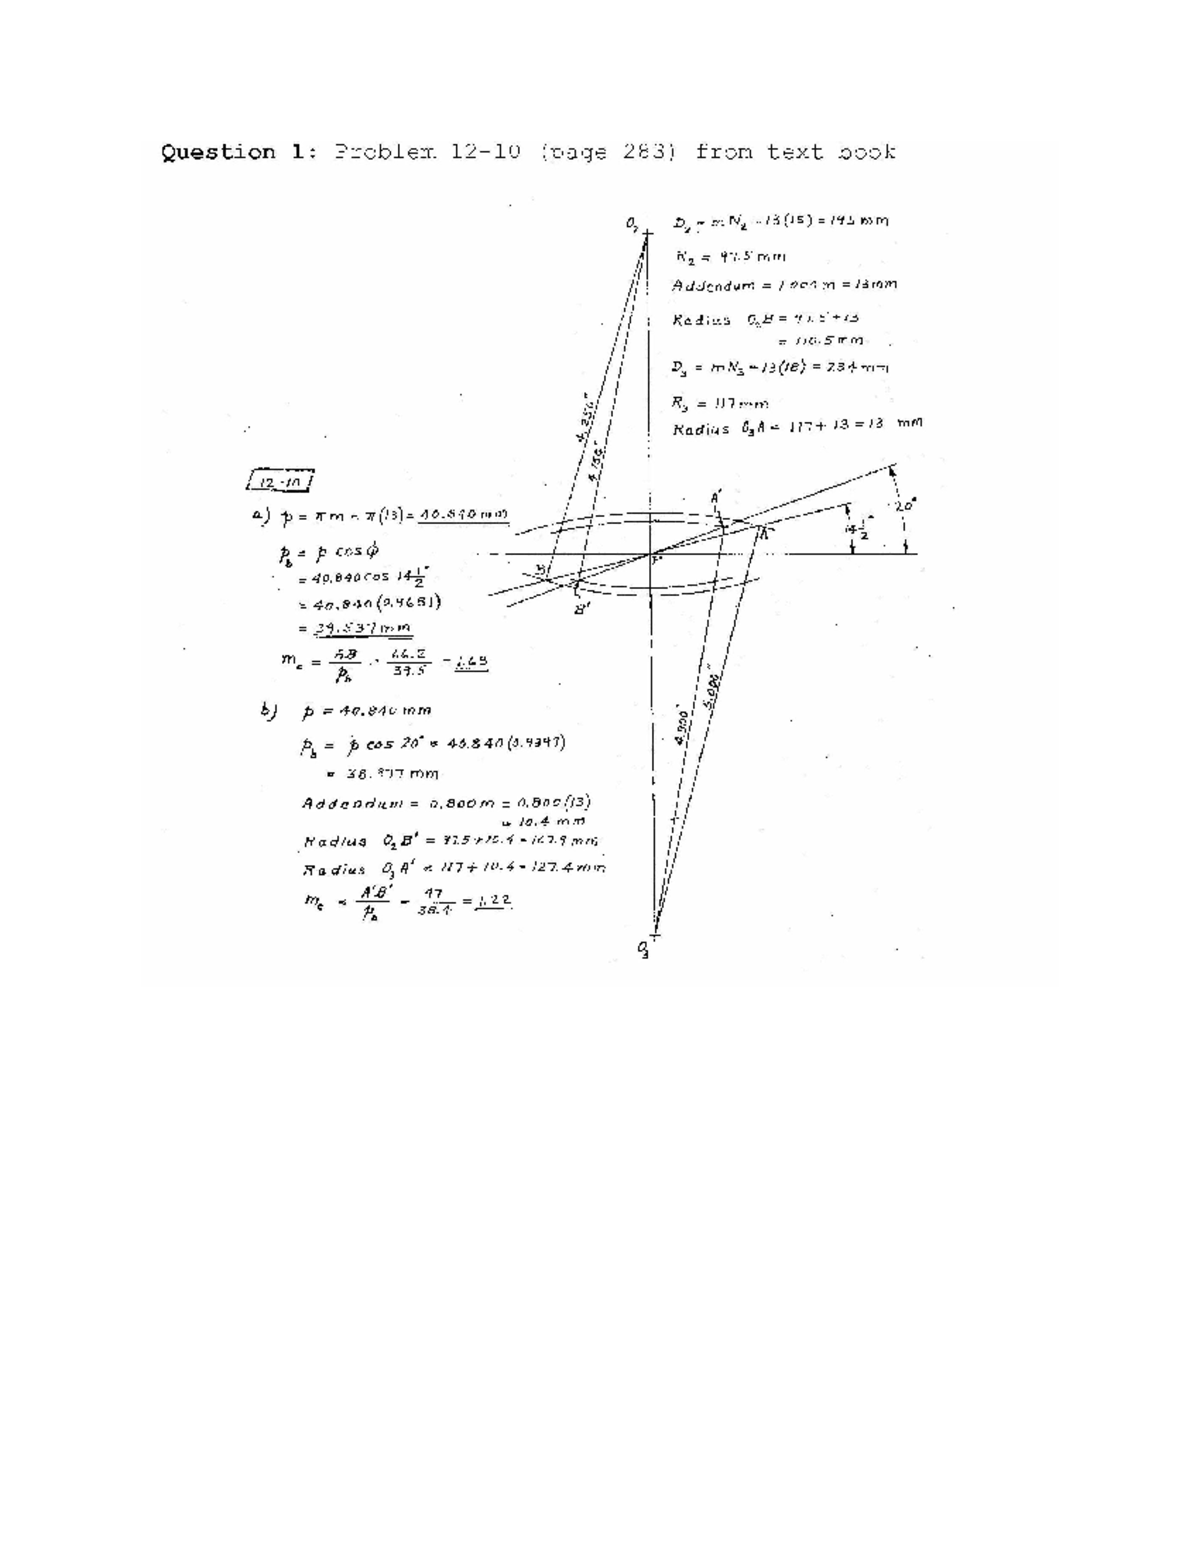 Question 1: Problem 12-10 (page 283) from text book
O2
D2 = mN2 = 13(15) = 195 mm
R2 = 97.5 mm
Addendum = 1.000 m = 13mm
Radius O2B = 97.5 + 13
= 110.5 mm
D3 = mN3 = 13(18) = 234 mm
R3 = 117 mm
Radius O3A = 117 + 13 = 13 mm
4.250"
4.150"
12-10
a) p = πm = π(13) = 40.840 mm
pb = p cos ϕ
= 40.840 cos 14 1/2°
= 40.840 (0.9681)
= 39.537 mm
mc = AB/pb = 66.2/39.5 = 1.68
A'
A
20°
14 1/2°
P
B
B'
5.000"
4.900"
b) p = 40.840 mm
pb = p cos 20° = 40.840 (0.9397)
= 38.377 mm
Addendum = 0.800 m = 0.800 (13)
= 10.4 mm
Radius O2B' = 97.5 + 10.4 = 107.9 mm
Radius O3A' = 117 + 10.4 = 127.4 mm
mc = A'B'/pb = 47/38.4 = 1.22
O3